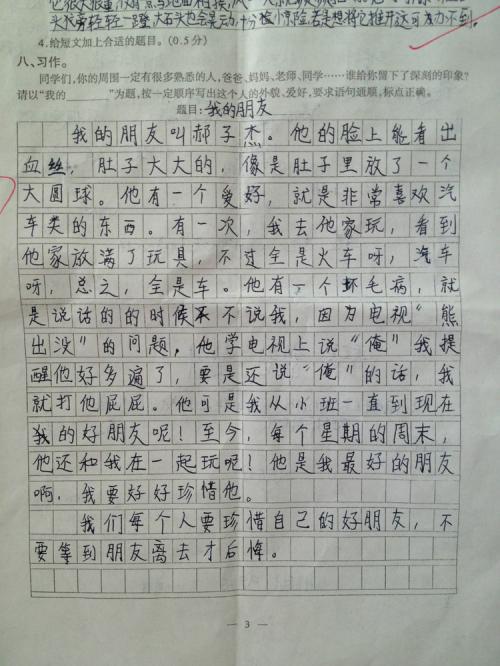 头代旁轻轻一蹬,大石头也会晃动,十分惊险,若是想将它推开这可力不到。
4.给短文加上合适的题目。(0.5分)
八、习作。
同学们,你的周围一定有很多熟悉的人,爸爸、妈妈、老师、同学……谁给你留下了深刻的印象?
请以“我的______”为题,按一定顺序写出这个人的外貌、爱好,要求语句通顺,标点正确。
题目:我的朋友
我的朋友叫郝子杰。他的脸上能看出
血丝,肚子大大的,像是肚子里放了一个
大圆球。他有一个爱好,就是非常喜欢汽
车类的东西。有一次,我去他家玩,看到
他家放满了玩具,不过全是火车呀,汽车
呀,总之,全是车。他有一个坏毛病,就
是说话的的时候不不说我,因为电视“熊
出没”的问题,他学电视上说“俺”我提
醒他好多遍了,要是还说“俺”的话,我
就打他屁屁。他可是我从小班一直到现在
我的好朋友呢!至今,每个星期的周末,
他还和我在一起玩呢!他是我最好的朋友
啊,我要好好珍惜他。
我们每个人要珍惜自己的好朋友,不
要等到朋友离去才后悔。
— 3 —